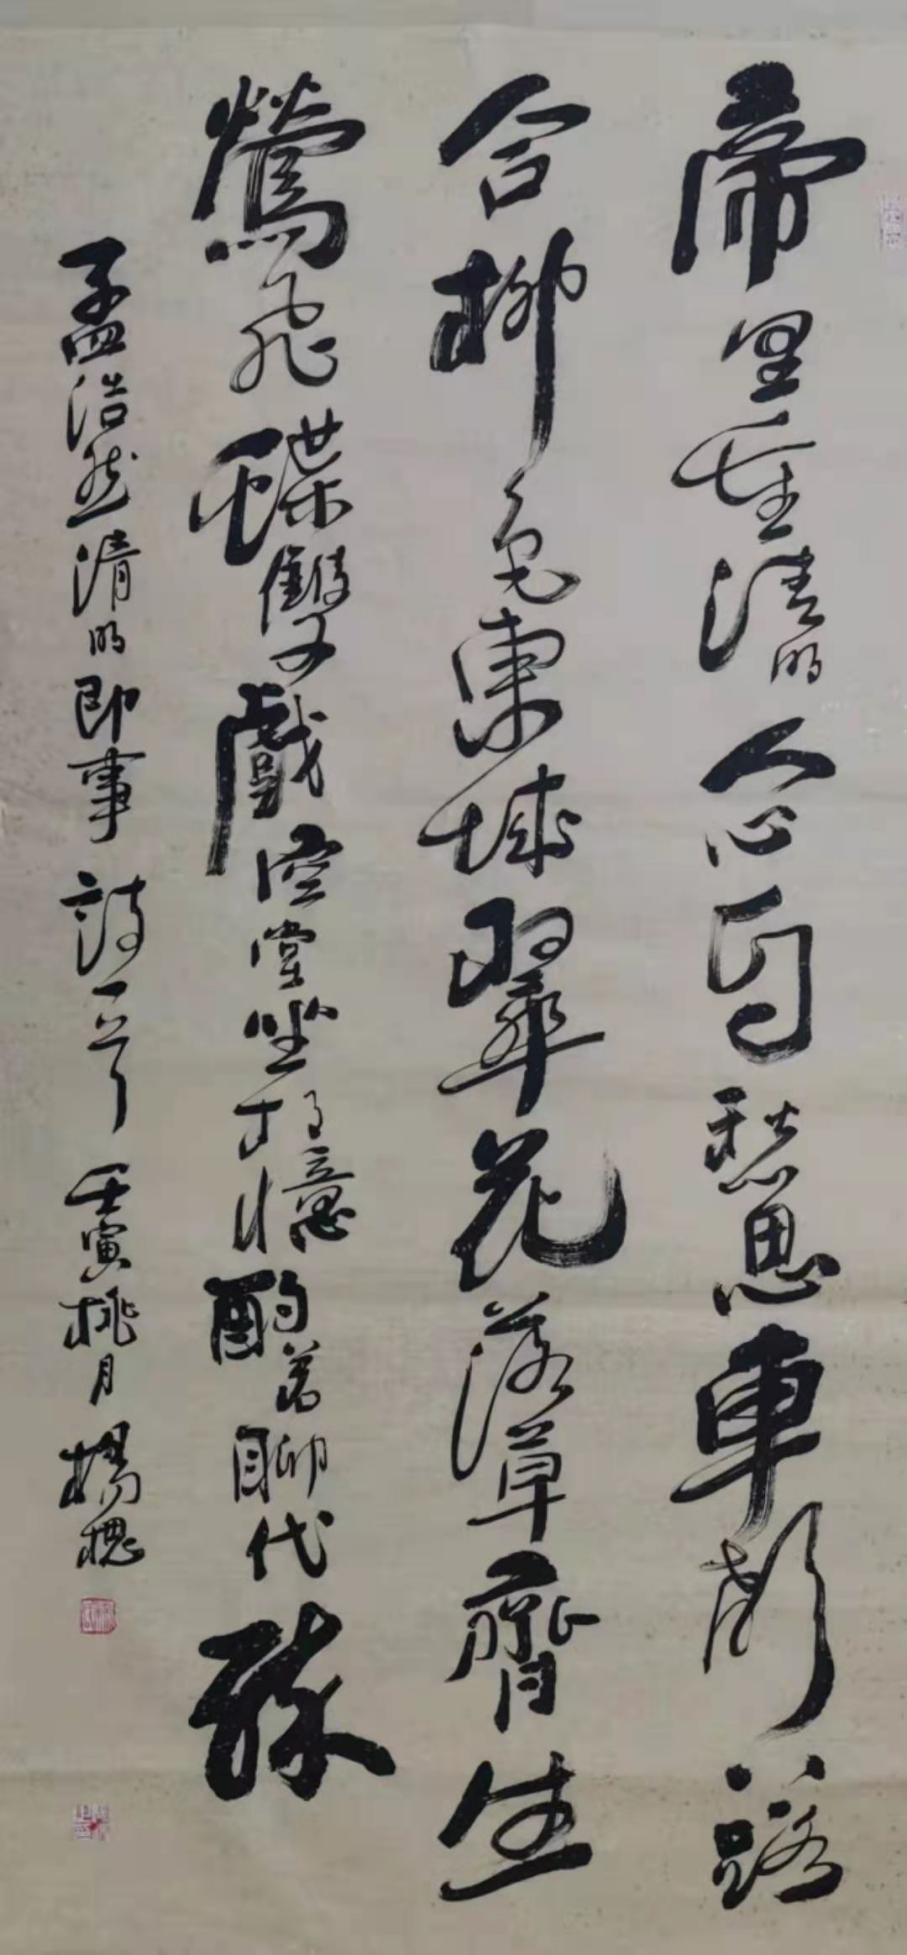 帝里重清明人心自愁思車聲上路
合柳色東城翠花落草齊生
鶯飛蝶雙戲空堂坐相憶酌茗聊代醉
孟浩然清明即事詩一首壬寅桃月楊槐